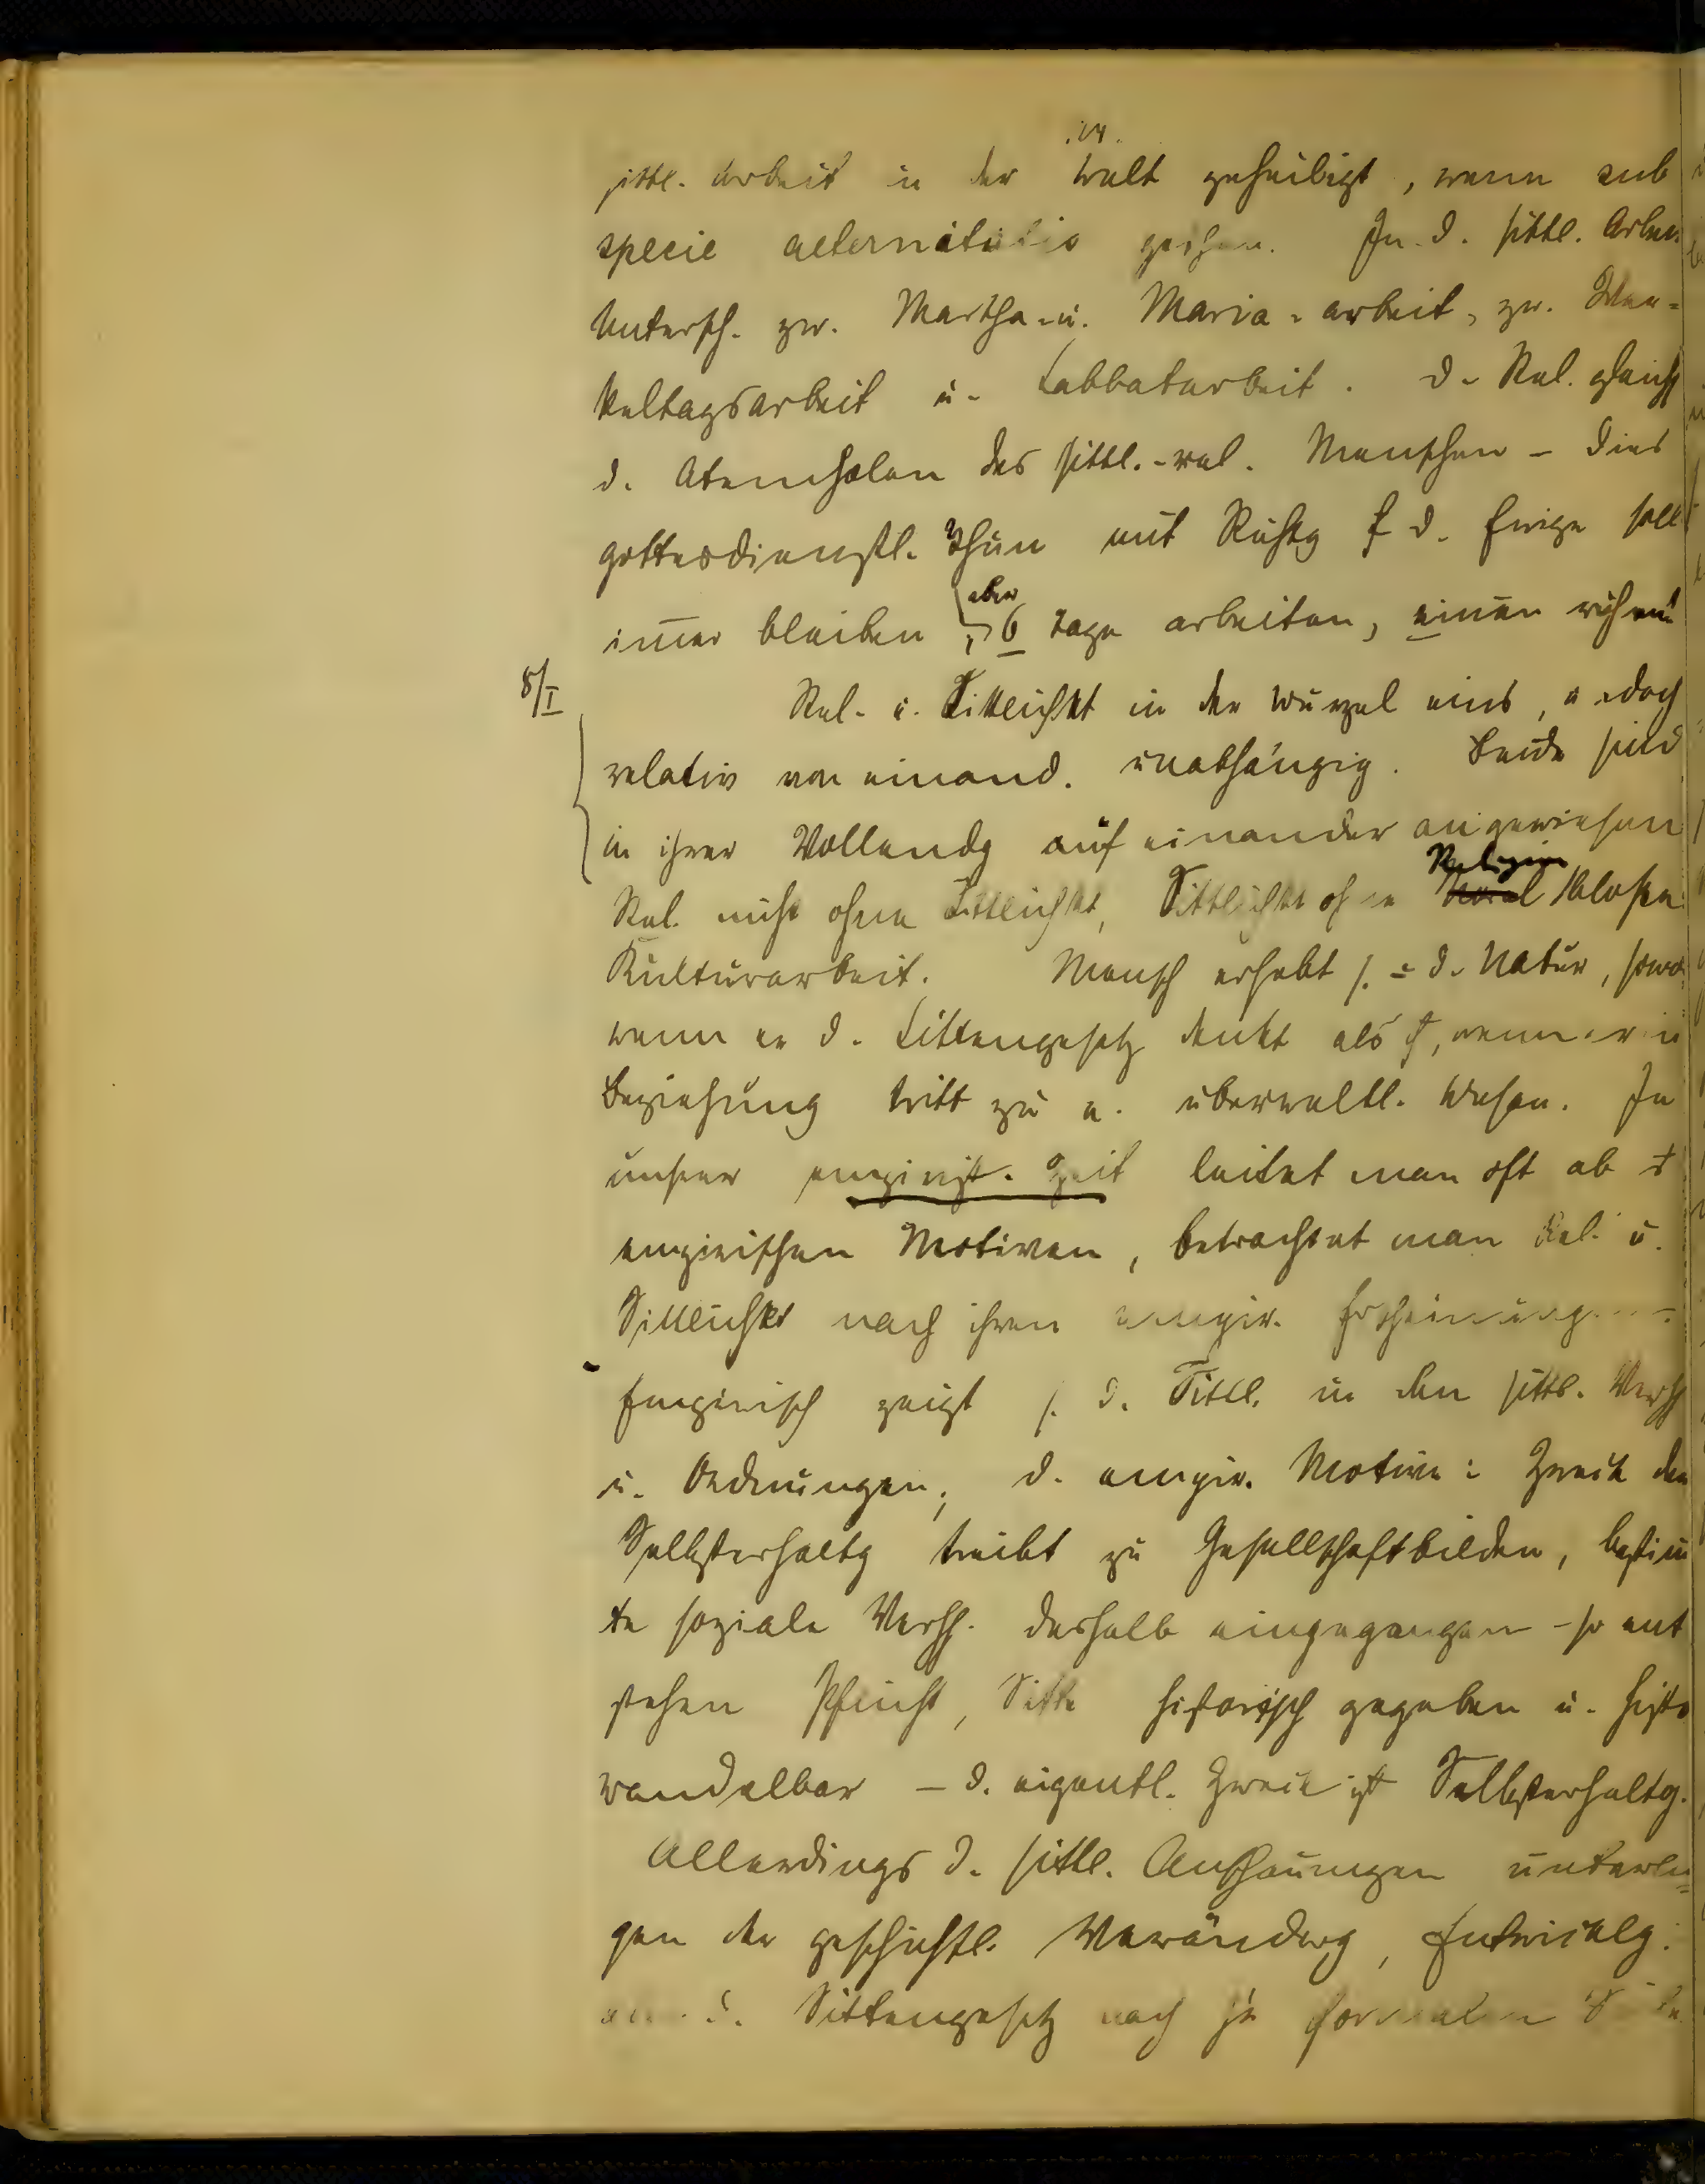 sittl. Arbeit in der Welt geheiligt, wenn sub
specie aeternitatis gesehen. In d. sittl. Arbeit
Untersch. zw. Martha- u. Maria-arbeit, zw. Wer-
keltagsarbeit u. Sabbatarbeit. D. Rel. gleich
d. Atemholen des sittl.-rel. Menschen – dies
gottesdienstl. Thun mit Richtg f d. Ewige soll
immer bleiben, aber 6 Tage arbeiten, einen ruhen!
8/I
Rel. u. Sittlichkt in der Wurzel eins, u. doch
relativ von einand. unabhängig. Beide sind
in ihrer Vollendg auf einander angewiesen
Rel. nicht ohne Sittlichkt, Sittlichkt ohne Religion bloße
Kulturarbeit. Mensch erhebt s. d. Natur, sowo
wenn er d. Sittengesetz denkt als, wenn er in
Beziehung tritt zu e. überweltl. Wesen. In
unserer empirist. Zeit leitet man oft ab
empirischen Motiven, betrachtet man Rel. u.
Sittlichkt nach ihren empir. Erscheinungen
Empirisch zeigt s. d. Sittl. in den sittl. Verh
u. Ordnungen, d. empir. Motive: Zweck der
Selbsterhaltg treibt zu Gesellschaftbilden, bestim
te soziale Verh. deshalb eingegangen – so ent
stehen Pflicht, Sitte historisch gegeben u. histo
wandelbar – d. eigentl. Zweck ist Selbsterhaltg.
Allerdings d. sittl. Anschauungen unterlie=
gen der geschichtl. Veränderg, Entwicklg.
d. Sittengesetz nach formalen